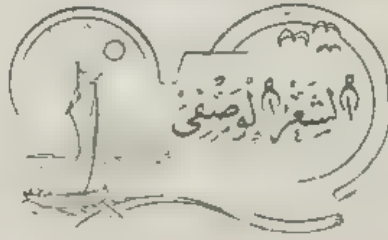 الشِّعْرُ الوَصْفِي